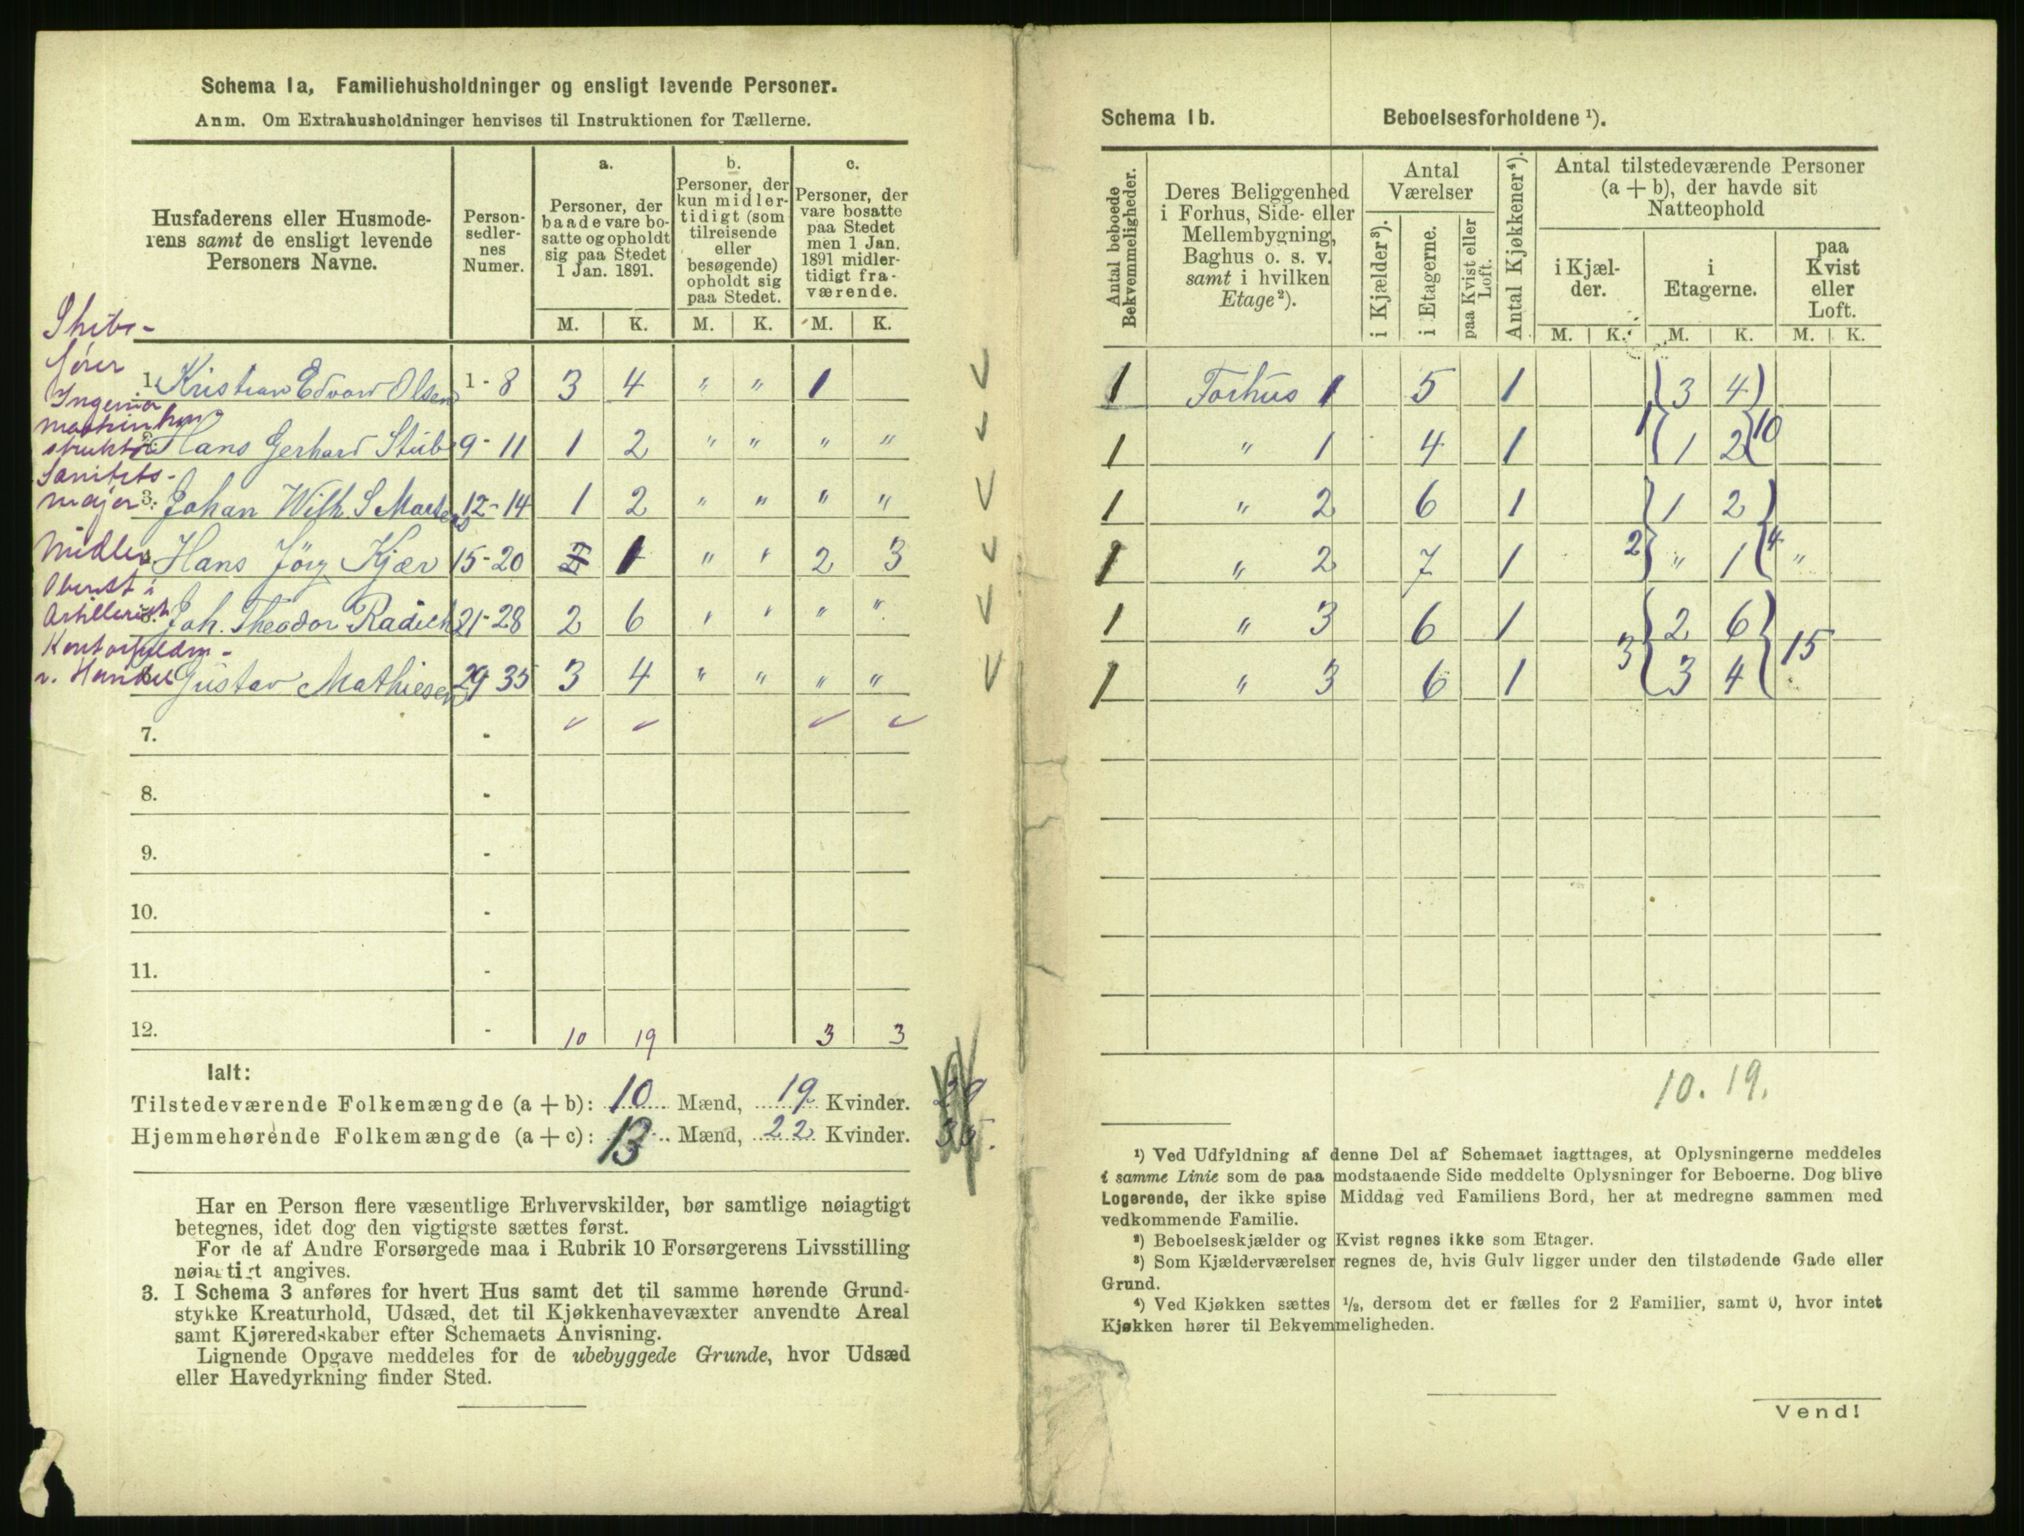 Schema 1a, Familiehusholdninger og ensligt levende Personer.
Anm. Om Extrahusholdninger henvises til Instruktionen for Tællerne.
Husfaderens eller Husmode-
rens samt de ensligt levende
Personers Navne.
Person-
sedler-
nes
Numer.
a.
Personer, der
baade vare bo-
satte og opholdt
sig paa Stedet
1 Jan. 1891.
b.
Personer, der
kun midler-
tidigt (som
tilreisende
eller
besøgende)
opholdt sig
paa Stedet.
c.
Personer, der
vare bosatte
paa Stedet
men 1 Jan.
1891 midler-
tidigt fra-
værende.
M. K. M. K. M. K.
Skibs-
fører
1. Kristian Edvard Olsen 1 - 8 3 4 " " 1
Ingeniør
maskinkon
struktør
2. Hans Gerhard Stub 9 - 11 1 2 " " " "
Sanitets-
major
3. Johan Wilh S Martens 12 - 14 1 2 " " " "
Midler
Hans Jörg Kjær 15 - 20 1 " " 2 3
Oberst i
Artilleriet
5. Joh. Theodor Radich 21 - 28 2 6 " " " "
Kontorfuldm-
v. Handel
6. Gustav Mathiesen 29 35 3 4 " " " "
7. -
8. -
9. -
10. -
11. -
12. - 10 19 3 3
Ialt:
Tilstedeværende Folkemængde (a + b): 10 Mænd, 19 Kvinder.
Hjemmehørende Folkemængde (a + c): 13 Mænd, 22 Kvinder.
Har en Person flere væsentlige Erhvervskilder, bør samtlige nøiagtigt
betegnes, idet dog den vigtigste sættes først.
For de af Andre Forsørgede maa i Rubrik 10 Forsørgerens Livsstilling
nøiagtigt angives.
3. I Schema 3 anføres for hvert Hus samt det til samme hørende Grund-
stykke Kreaturhold, Udsæd, det til Kjøkkenhavevæxter anvendte Areal
samt Kjøreredskaber efter Schemaets Anvisning.
Lignende Opgave meddeles for de ubebyggede Grunde, hvor Udsæd
eller Havedyrkning finder Sted.
Schema 1b. Beboelsesforholdene ¹).
Antal beboede
Bekvemmeligheder.
Deres Beliggenhed
i Forhus, Side- eller
Mellembygning,
Baghus o. s. v.
samt i hvilken
Etage ²).
Antal
Værelser
i Kjælder ³).
i Etagerne.
paa Kvist eller
Loft.
Antal Kjøkkener ⁴).
Antal tilstedeværende Personer
(a + b), der havde sit
Natteophold
i Kjæl-
der.
i
Etagerne.
paa
Kvist
eller
Loft.
M. K. M. K. M. K.
1 Forhus 1 5 1 3 4
1 " 1 4 1 1 1 2 10
1 " 2 6 1 1 2
1 " 2 7 1 2 " 1 4 "
1 " 3 6 1 2 6
1 " 3 6 1 3 3 4 15
10. 19.
¹) Ved Udfyldning af denne Del af Schemaet iagttages, at Oplysningerne meddeles
i samme Linie som de paa modstaaende Side meddelte Oplysninger for Beboerne. Dog blive
Logerende, der ikke spise Middag ved Familiens Bord, her at medregne sammen med
vedkommende Familie.
²) Beboelseskjælder og Kvist regnes ikke som Etager.
³) Som Kjælderværelser regnes de, hvis Gulv ligger under den tilstødende Gade eller
Grund.
⁴) Ved Kjøkken sættes ½, dersom det er fælles for 2 Familier, samt 0, hvor intet
Kjøkken hører til Bekvemmeligheden.
Vend!